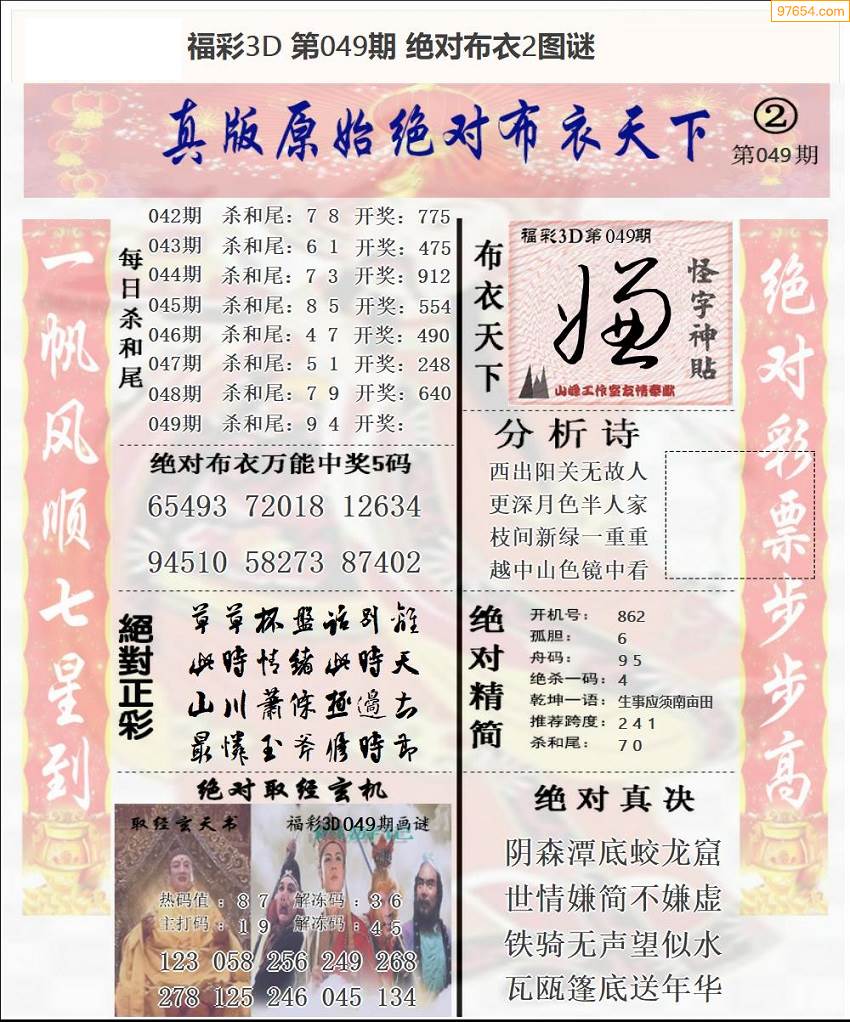 97654.com
福彩3D 第049期 绝对布衣2图谜
真版原始绝对布衣天下
②
第049期
一帆风顺七星到
每日杀和尾
042期 杀和尾：7 8 开奖：775
043期 杀和尾：6 1 开奖：475
044期 杀和尾：7 3 开奖：912
045期 杀和尾：8 5 开奖：554
046期 杀和尾：4 7 开奖：490
047期 杀和尾：5 1 开奖：248
048期 杀和尾：7 9 开奖：640
049期 杀和尾：9 4 开奖：
绝对布衣万能中奖5码
65493 72018 12634
94510 58273 87402
絕對正彩
草草杯盤话别離
此時情绪此時天
山川蕭條極邊去
最憐玉斧修時節
绝对取经玄机
取经玄天书
福彩3D049期画谜
热码值：8 7 解冻码：3 6
主打码：1 9 解冻码：4 5
123 058 256 249 268
278 125 246 045 134
布衣天下
福彩3D第049期
嫌
怪字神貼
山峰工作室友情奉献
分析诗
西出阳关无故人
更深月色半人家
枝间新绿一重重
越中山色镜中看
绝对精简
开机号： 862
孤胆： 6
舟码： 9 5
绝杀一码：4
乾坤一语：生事应须南亩田
推荐跨度：2 4 1
杀和尾： 7 0
绝对真决
阴森潭底蛟龙窟
世情嫌简不嫌虚
铁骑无声望似水
瓦瓯篷底送年华
绝对彩票步步高